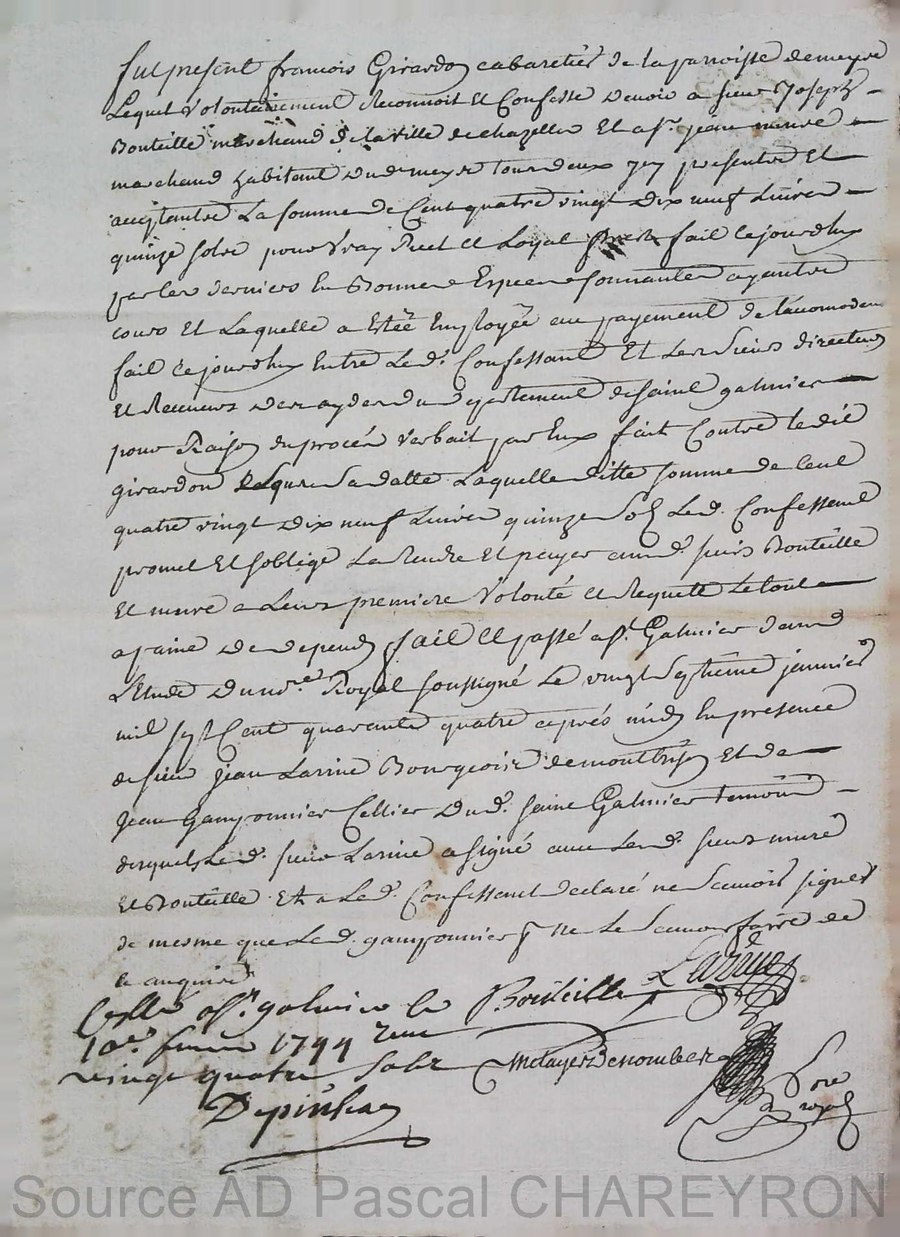 fut present francois Girardon cabaretier de la parroisse de meyse
Lequel volontairement Reconnoit Et Confesse devoir a sieur Joseph
Bouteille marchand de la ville de chazelles Et a sr. jean mure
marchand habitant dud. meyse tous deux presents Et
acceptants La somme de Cent quatre vingt Dix neuf Livres
quinze sols pour vray Pret et Loyal fait cejourdhuy
par les derniers En Bonnes Especes sonnantes ayants
cours Et Laquelle a Estée Employée au payement de l'accomodem
fait cejourdhuy Entre Led. Confessant Et Les Sieurs directeur
Et Receveurs des aydes du departement de saint galmier
pour Raison du procés verbail par Eux fait Contre le dit
girardon sa datte Laquelle ditte somme de Cent
quatre vingt dix neuf Livres quinze sols Led. Confessant
promet Et soblige La Rendre Et payer auxd. sieurs Bouteille
Et mure a Leurs premiere volonté et Requete Le tout
a paine de depends fait Et passé a st. Galmier dans
L'Etude du nore. Royal soussigné Le vingt septième janvier
mil sept Cent quarante quatre aprés midy En presence
de sieur jean Larine Bourgeois de montbrison Et de
jean gamponnier Cellier dud. saint Galmier temoins
desquels Led. sieur Larine a signé avec Lesd. sieurs mure
Et Bouteille Et a Led. Confessant declaré ne scavoir signer
de mesme que Led. gamponnier ne Le scavoir faire de
ce enquis
Larine
Bouteille
Collé a st. galmier le
10e. fevrier 1744
vingt quatre sols
metayer Denombret
nore royal
Depinhac
Source AD Pascal CHAREYRON